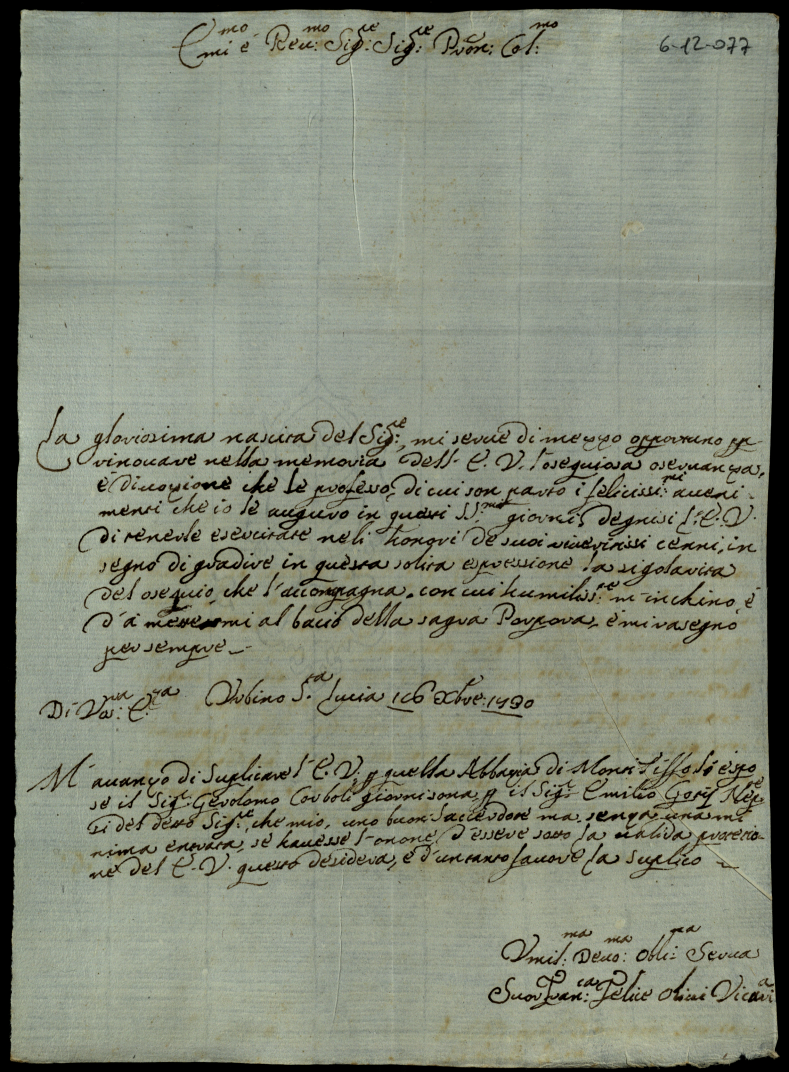 E:mo mi e Reu:mo Sig:re Sig:re Pron: Col:mo
6-12-077
La gloriosima nascita del Sig:re, mi serue di mezzo opportuno p
rinouare nella memoria dell- E. V. l'osequiosa oseruanza,
e diuozione che le professo, di cui son parto i felicissi:mi aueni
menti che io le auguro in questi SS:mi giorni, degnisi l'E. V.
di tenerle esercitate neli honori de suoi riueritissi cenni, in
segno di gradire in questa solita espressione la sigolarita
del osequio che l'accompagna. con cui humiliss:te m'inchino, e
d'a mi al bacio della sagra Porpora, e mi rasegno
per sempre –
Di Vra: E:za Vrbino S:ta Lucia 16 Xbre: 1730
M'auanzo di Suplicare l'E. V. p quella Abbazia di Monte
se il Sig:re Gerolomo Corboli giorni sona, p il Sig:re Emilio
ti del detto Sig:re, che mio, uno buon sacierdote ma senza una mi
nima entrata, se hauesse l'onore d'essere sotto la ualida protetio-
ne del E. V. questo desidera, e d'un tanto fauore la suplico –
Vmil:ma Deuo:ma Obli:ma Serua
Suor Fran:ca Felice Vicaria